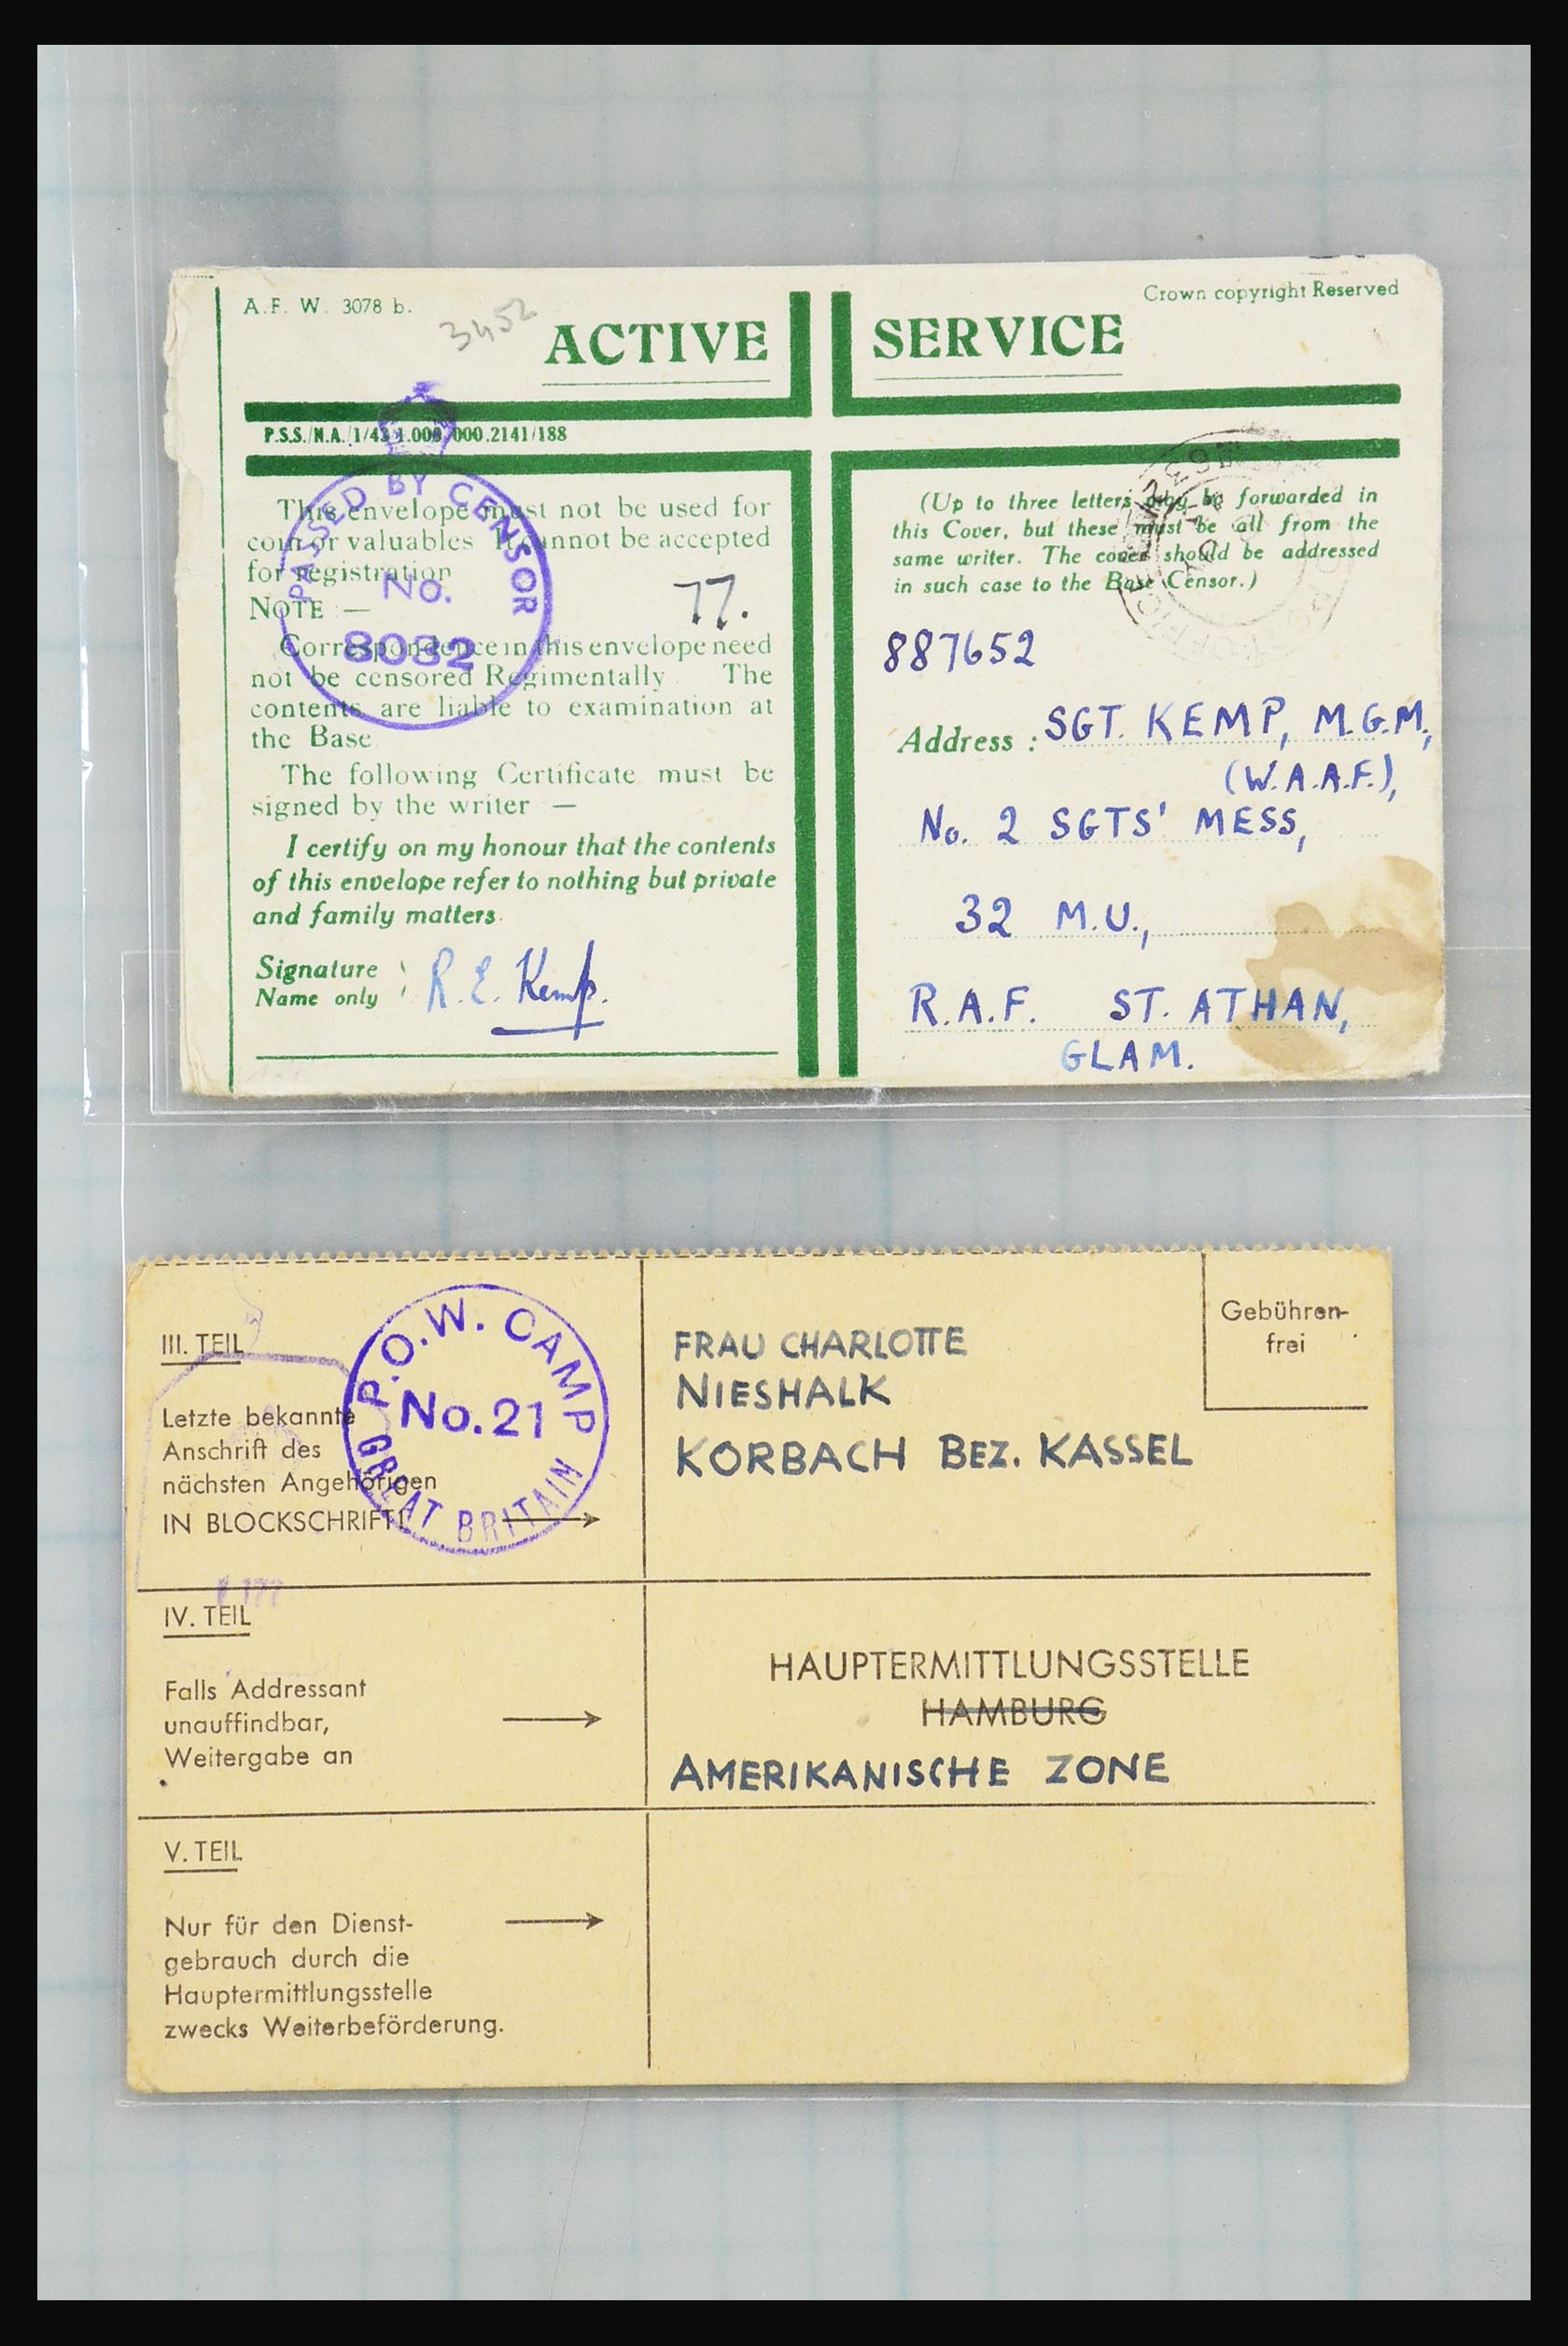 A.F. W. 3078 b.
3452
Crown copyright Reserved
ACTIVE SERVICE
P.S.S./N.A./1/43 1.000,000.2141/188
PASSED BY CENSOR
No.
8032
This envelope must not be used for
coin or valuables It cannot be accepted
for registration
NOTE :—
77.
Correspondence in this envelope need
not be censored Regimentally The
contents are liable to examination at
the Base
The following Certificate must be
signed by the writer —
I certify on my honour that the contents
of this envelope refer to nothing but private
and family matters.
Signature
Name only
R. E. Kemp.
(Up to three letters may be forwarded in
this Cover, but these must be all from the
same writer. The cover should be addressed
in such case to the Base Censor.)
887652
Address : SGT. KEMP, M.G.M,
(W.A.A.F.),
No. 2 SGTS' MESS,
32 M.U.,
R.A.F. ST. ATHAN,
GLAM.
III. TEIL
Letzte bekannte
Anschrift des
nächsten Angehörigen
IN BLOCKSCHRIFT!
P.O.W. CAMP
No. 21
GREAT BRITAIN
FRAU CHARLOTTE
NIESHALK
KORBACH BEZ. KASSEL
Gebühren-
frei
IV. TEIL
Falls Addressant
unauffindbar,
Weitergabe an
HAUPTERMITTLUNGSSTELLE
HAMBURG
AMERIKANISCHE ZONE
V. TEIL
Nur für den Dienst-
gebrauch durch die
Hauptermittlungsstelle
zwecks Weiterbeförderung.